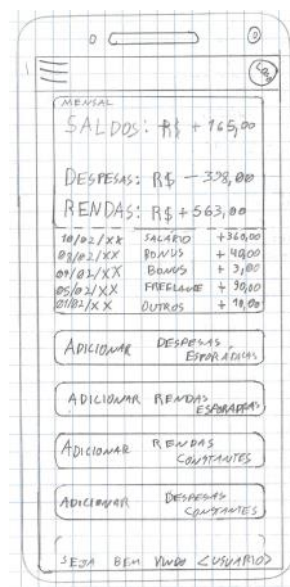 MENSAL
SALDOS: R$ + 165,00
DESPESAS: R$ - 398,00
RENDAS: R$ + 563,00
10/02/XX SALÁRIO +360,00
09/02/XX BONUS + 40,00
09/02/XX BONUS + 3,00
05/02/XX FREELANCE + 90,00
01/02/XX OUTROS + 10,00
ADICIONAR DESPESAS
ESPORÁDICAS
ADICIONAR RENDAS
ESPORADICAS
ADICIONAR RENDAS
CONSTANTES
ADICIONAR DESPESAS
CONSTANTES
SEJA BEM VINDO <USUARIO>